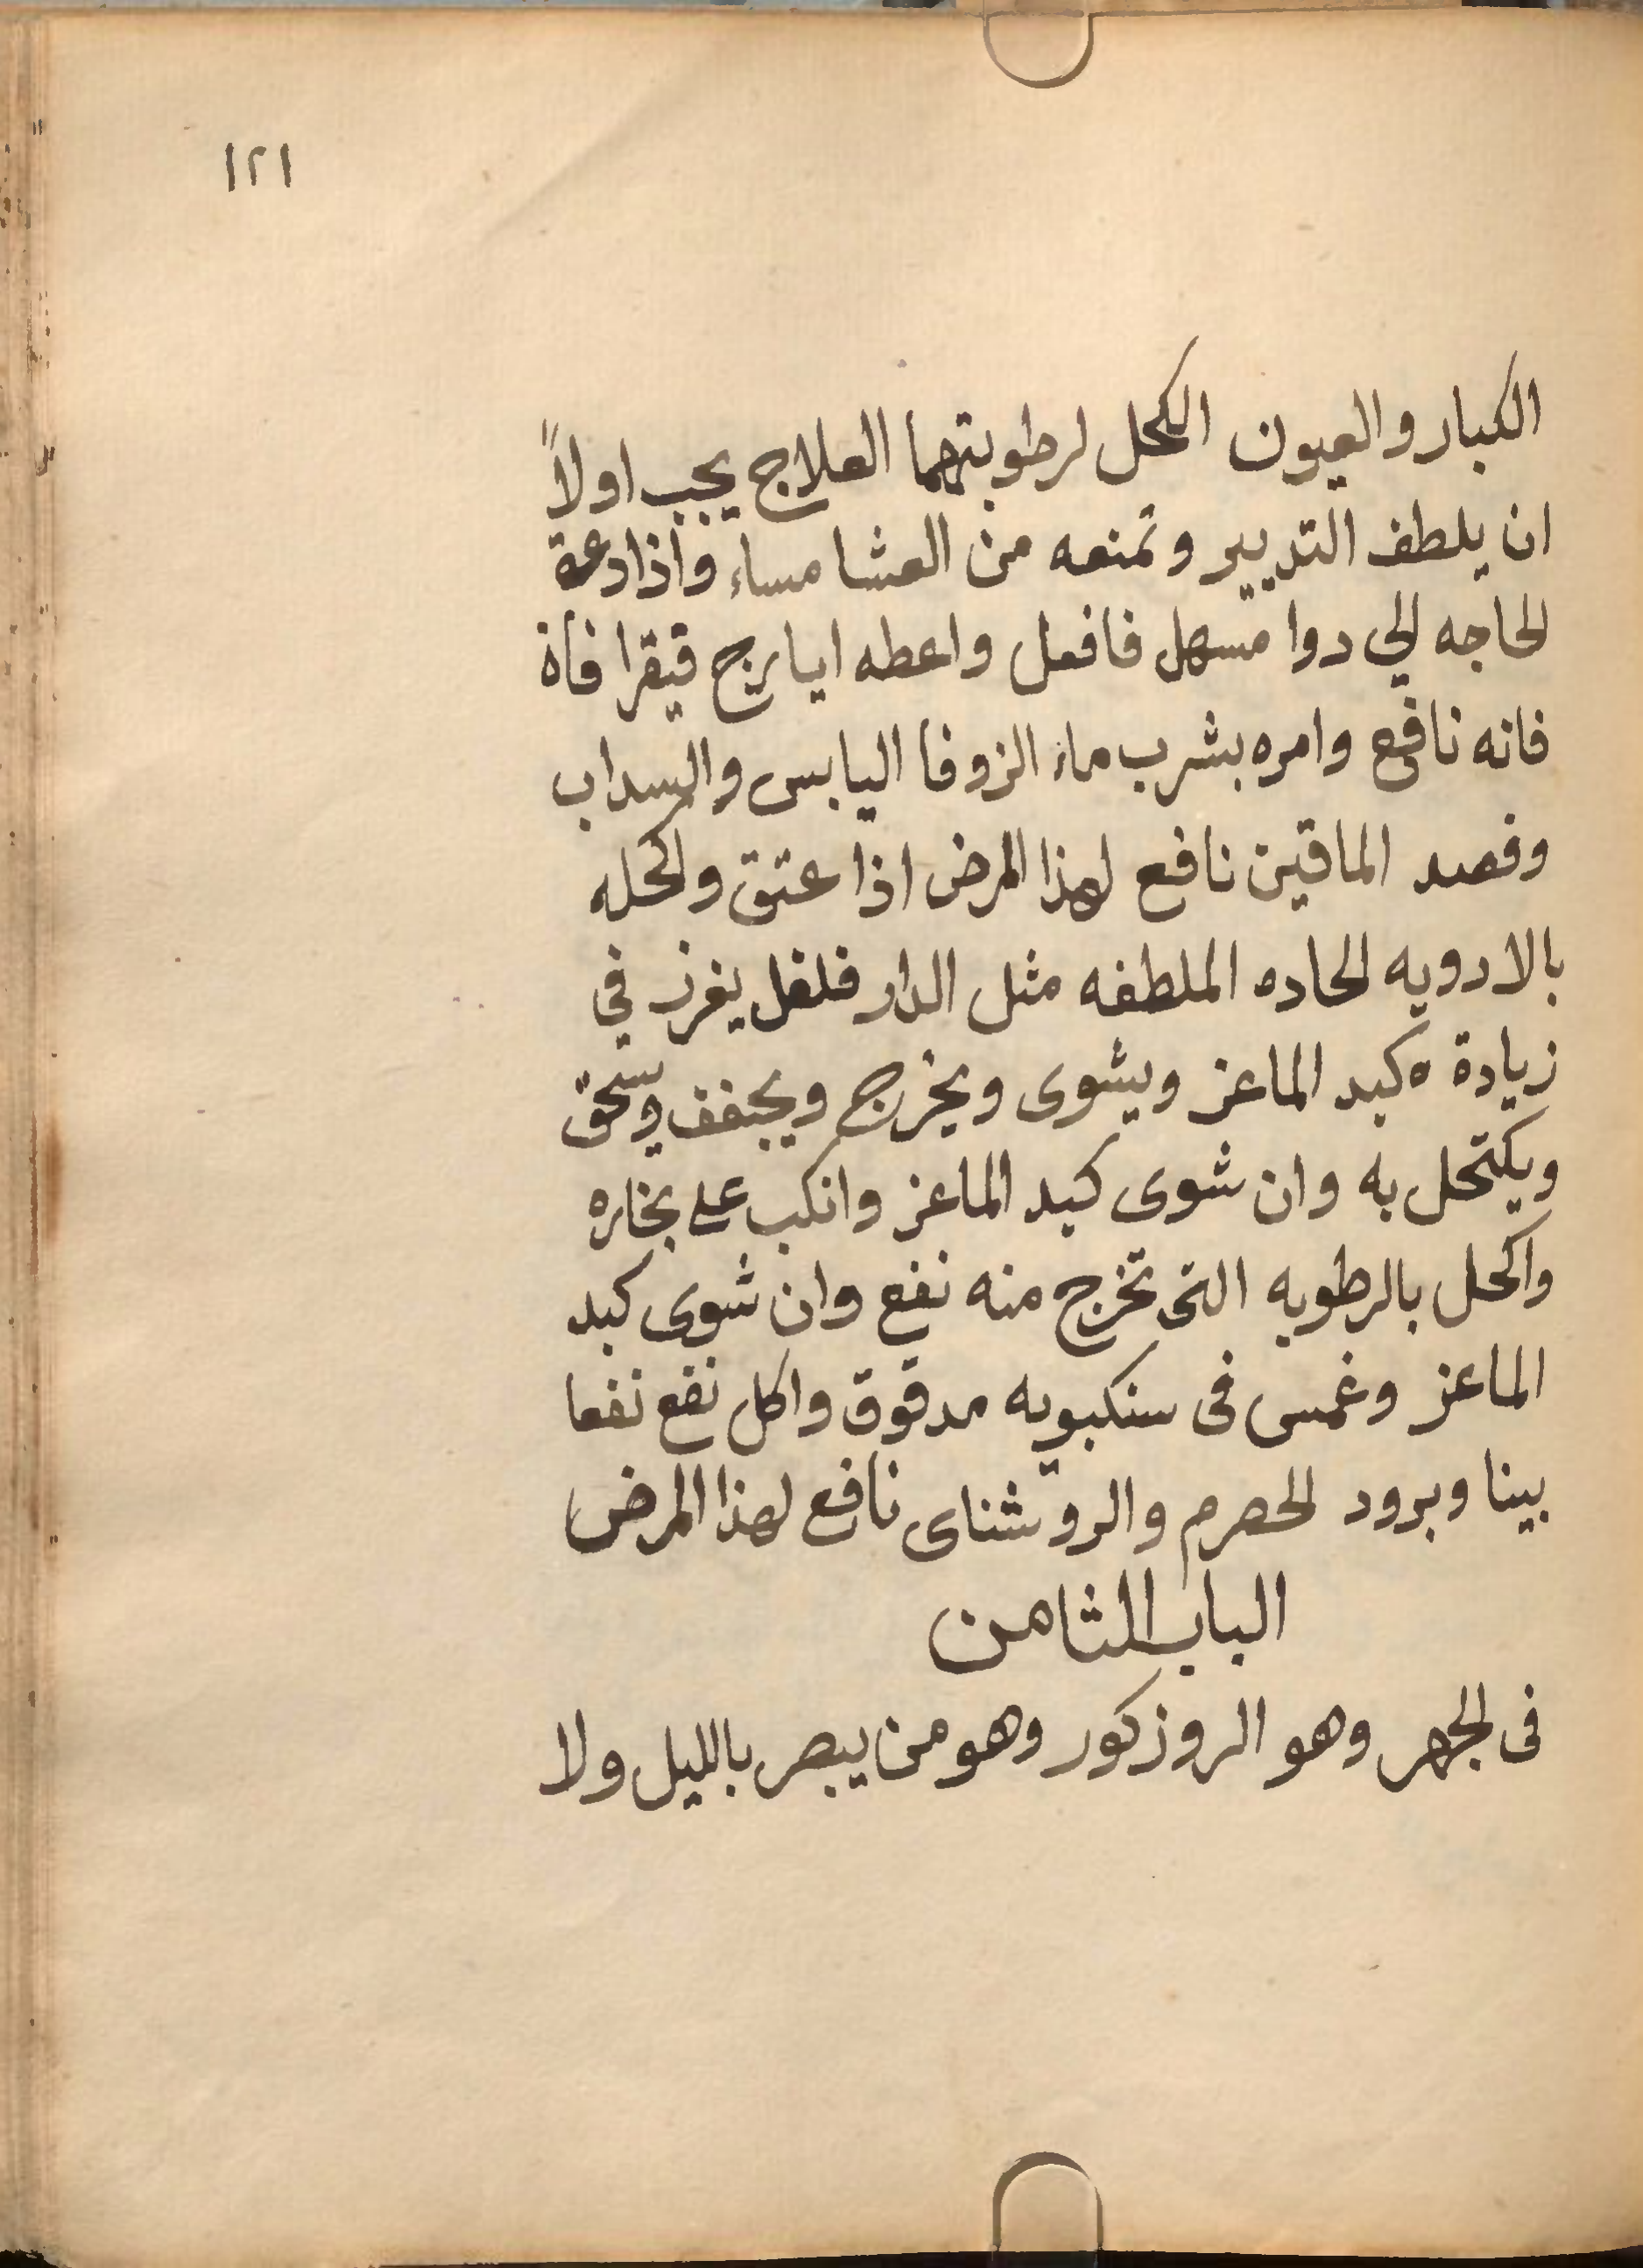 ١٢١
الكبار والعيون الكحل لرطوبتهما العلاج يجب اولاً
ان يلطف التدبير وتمنعه من العشا مساء واذا دعة
الحاجه الي دوا مسهل فافعل واعطه ايارج فيقرا فانه
فانه نافع وامره بشرب ماء الزوفا اليابس والسداب
وفصد الماقين نافع لهذا المرض اذا عتق واكحله
بالادويه الحاده الملطفه مثل الدار فلفل يغرز في
زيادة كبد الماعز ويشوى ويخرج ويجفف ويسحق
ويكتحل به وان شوى كبد الماعز وانكب على بخاره
واكحل بالرطوبه التى تخرج منه نفع وان شوى كبد
الماعز وغمس فى سنكبويه مدقوق واكل نفع نفعا
بينا وبرود الحصرم والروشناى نافع لهذا المرض
الباب الثامن
فى الجهر وهو الروزكور وهو من يبصر بالليل ولا